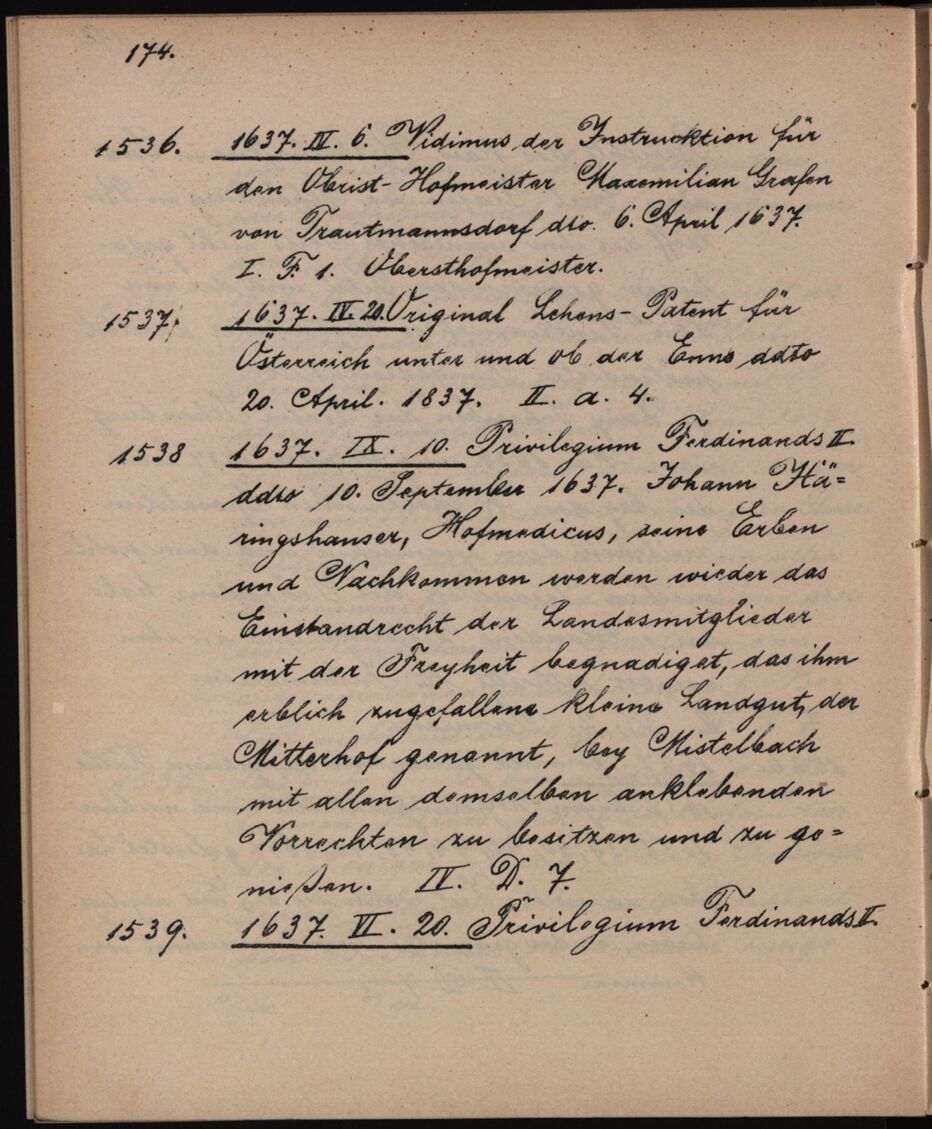 174.
1536. 1637. IV. 6. Vidimus der Instrucktion für
den Obrist-Hofmeister Maxemilian Grafen
von Trautmannsdorf dto. 6. April 1637.
I. F. 1. Obersthofmeister.
1537. 1637. IV. 20. Original Lehens-Patent für
Österreich unter und ob der Enns ddto
20. April. 1837. II. a. 4.
1538 1637. IX. 10. Privilegium Ferdinands II.
ddto 10. September 1637. Johann Hä=
ringshauser, Hofmedicus, seine Erben
und Nachkommen werden wieder das
Einstandrecht der Landesmitglieder
mit der Freyheit begnadiget, das ihm
erblich zugefallene kleine Landgut, der
Mitterhof genannt, bey Mistelbach
mit allen demselben anklebenden
Vorrechten zu besitzen und zu ge=
nießen. IV. D. 7.
1539. 1637. VI. 20. Privilegium Ferdinands II.